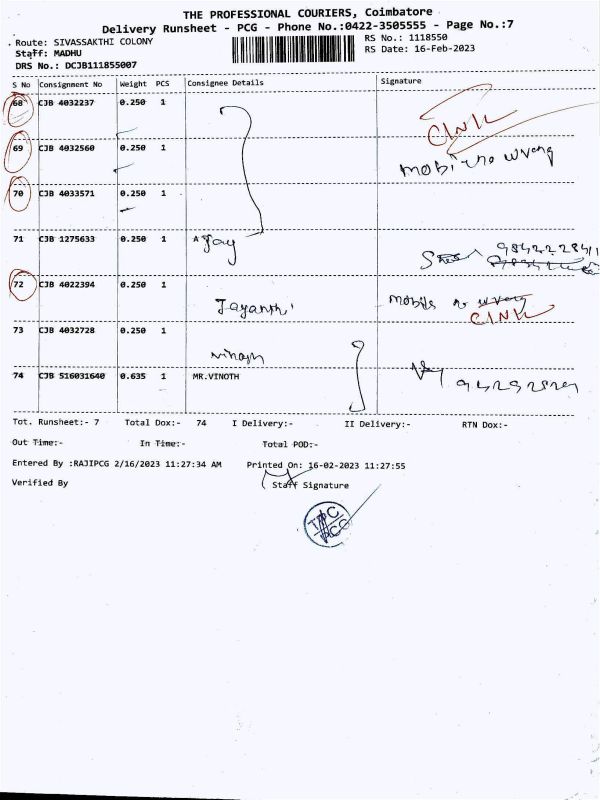 THE PROFESSIONAL COURIERS, Coimbatore
Delivery Runsheet - PCG - Phone No.:0422-3505555 - Page No.:7
Route: SIVASSAKTHI COLONY
RS No.: 1118550
Staff: MADHU
RS Date: 16-Feb-2023
DRS No.: DCJB111855007
S No Consignment No Weight PCS Consignee Details Signature
68 CJB 4032237 0.250 1
CINK
69 CJB 4032560 0.250 1
mobile no wrong
70 CJB 4033571 0.250 1
71 CJB 1275633 0.250 1 A Jay
72 CJB 4022394 0.250 1
Jayanthi mobile no wrong
CINK
73 CJB 4032728 0.250 1
vinoth
74 CJB 516031640 0.635 1 MR.VINOTH
Tot. Runsheet:- 7 Total Dox:- 74 I Delivery:- II Delivery:- RTN Dox:-
Out Time:- In Time:- Total POD:-
Entered By :RAJIPCG 2/16/2023 11:27:34 AM Printed On: 16-02-2023 11:27:55
Verified By Staff Signature
TPC
PCG